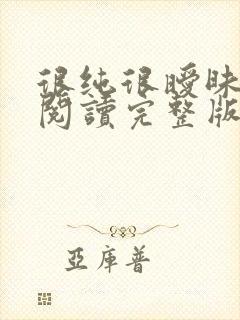 很純很曖昧
閱讀完整版
亞庫普